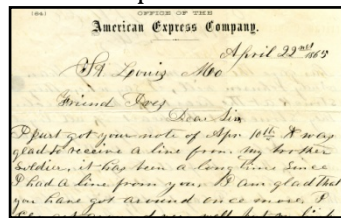 (64)
OFFICE OF THE
American Express Company.
April 22nd 1865
St Louis Mo
Friend Ives
Dear Sir
I just got your note of Apr 10th. I was
glad to receive a line from my brother
soldier, it has been a long time since
I had a line from you. I am glad that
you have got around once more, I